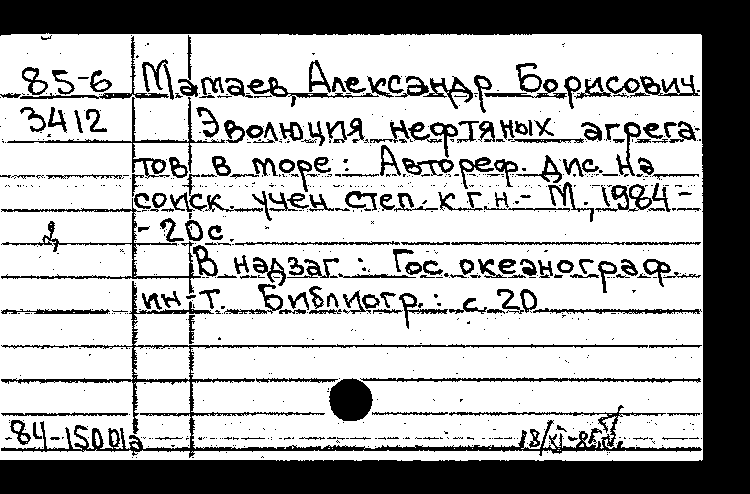 85-6 Мамаев, Александр Борисович
3412 Эволюция нефтяных агрега-
тов в море: Автореф. дис. на
соиск. учен степ. к.г.н.- М., 1984 -
- 20 с.
В надзаг.: Гос. океанограф.
ин-т. Библиогр.: с. 20
84-15001а 18/XI-85